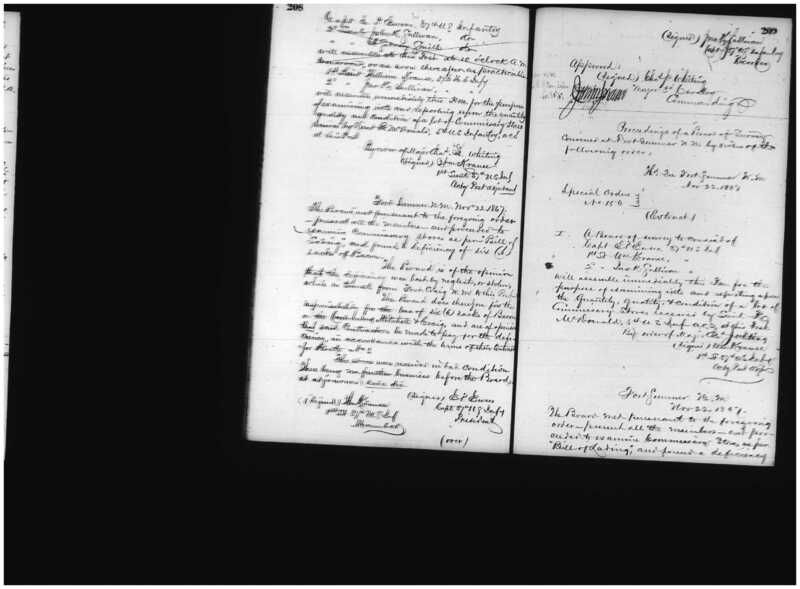 208
Capt E. P. Ewers, 37th U.S. Infantry
2d Lieut John K. Sullivan, do
" " Smith do
will assemble at this Post at 10 o'clock A.M.
tomorrow, or as soon thereafter as practicable
1st Lieut William Krause, 37th U.S. Infy
2d " Jno K. Sullivan, "
will assemble immediately this P.M. for the purpose
of examining into and reporting upon the quantity
quality and condition of a lot of Commissary Stores
received by Lieut McDonald, 5th U.S. Infantry, A.C.S.
at
By order of Major Chas J. Whiting
(Signed) Wm Krause
1st Lieut 37th U.S. Inf
Actg Post Adjutant
Fort Sumner N.M. Nov 22 1867.
The Board met pursuant to the foregoing order
—present all the members—and proceeded to
examine Commissary Stores as per "Bill of
Lading", and found a deficiency of six (6)
sacks of Bacon.
The Board is of the opinion
that the deficiency was lost by neglect, or stolen,
while in transit from Fort Craig N.M. to this Post
The Board does therefore fix the
responsibility for the loss of six (6) sacks of Bacon
on the Mitchell & Craig, and are of opinion
that said Contractors be made to pay for the defi-
ciency, in accordance with the terms of their Contract
for Route No 2
The were received in bad condition
There being no further business before the Board,
it adjourned sine die
(Signed) E P Ewers
(Signed) Wm Krause Capt 37th U.S. Infy
1st Lt 37th U.S. Inf President
Member
(over)
209
(Signed) Jno K Sullivan
Lieut 37th U.S. Infantry
Recorder
Approved:
(Signed) Chas J. Whiting
Major 3d Cavalry
Commanding
Proceedings of a Board of Survey
Convened at Fort Sumner N.M. by virtue of the
following order.
Hd Qrs Fort Sumner N.M.
Nov 22, 1867
Special Orders
No 156
(Extract)
I. A Board of Survey to consist of
Capt E.P. Ewers 37th U.S. Inf
1st Lt Wm Krause, "
2d " Jno K. Sullivan "
will assemble immediately this P.M. for the
purpose of examining into and reporting upon
the Quantity, Quality & Condition of a lot of
Commissary Stores received by Lieut
McDonald, 5th U.S. Inf A.C.S. at this Post
By order of Maj. Chas J. Whiting
(Signed) Wm Krause
1st Lt 37th U.S. Inf
Actg Post Adjt
Fort Sumner N.M.
Nov 22, 1867.
The Board met pursuant to the foregoing
order—present all the members—and pro-
ceeded to examine Commissary Stores, as per
"Bill of Lading", and found a deficiency